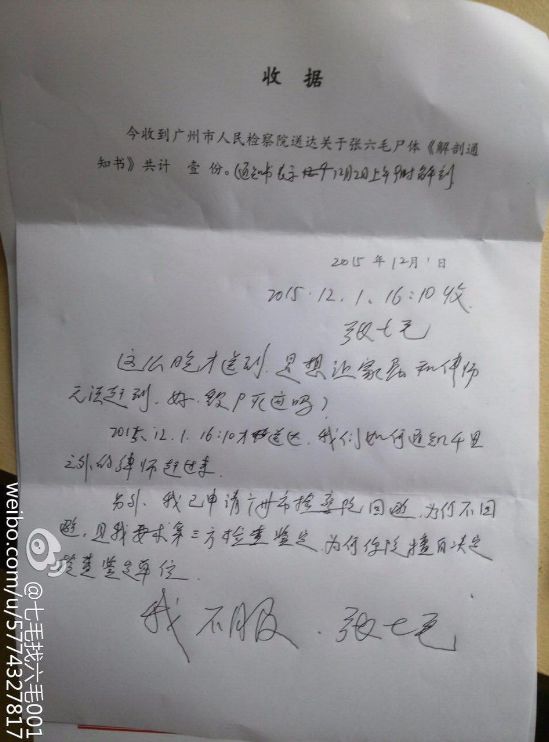 收据
今收到广州市人民检察院送达关于张六毛尸体《解剖通
知书》共计 壹 份。(通知书表示 12月2日上午9时解剖
2015 年 12月 1 日
2015.12.1、16:10收
张七毛
这么晚才送到,是想让家属和律师
无法赶到,好 吗?
2015.12.1.16:10才送达,我们如何通知千里
之外的律师赶过来.
另外,我已申请广州市检察院回避,为何不回
避,且我要求第三方检查鉴定,为何你院擅自决定
检查鉴定单位.
我不服.张七毛
@七毛找六毛001
weibo.com/u/5774327817